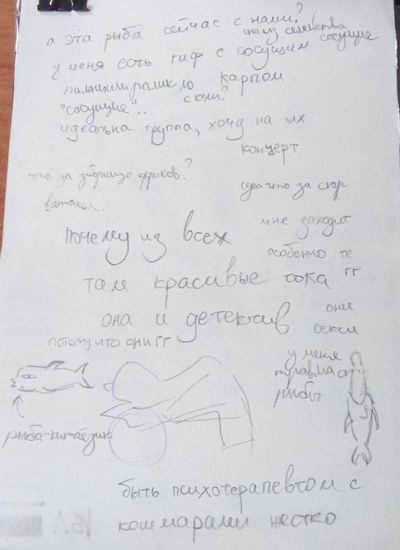 а эта рыба сейчас с нами?
из семейства сосущих
у меня есть гиф с сосущим
карпом
"сосущие"...
с кем?
идеальна группа, хочу на их
концерт
что за сборище фриков?
что за сюр
мне заходит
Почему из всех
особенно те
там красивые тока
гг
она и детектив
они
секси
потому что они гг
у меня
травма от
рыбы
рыба-китаёзик
быть психотерапевтом с
кошмарами жестко